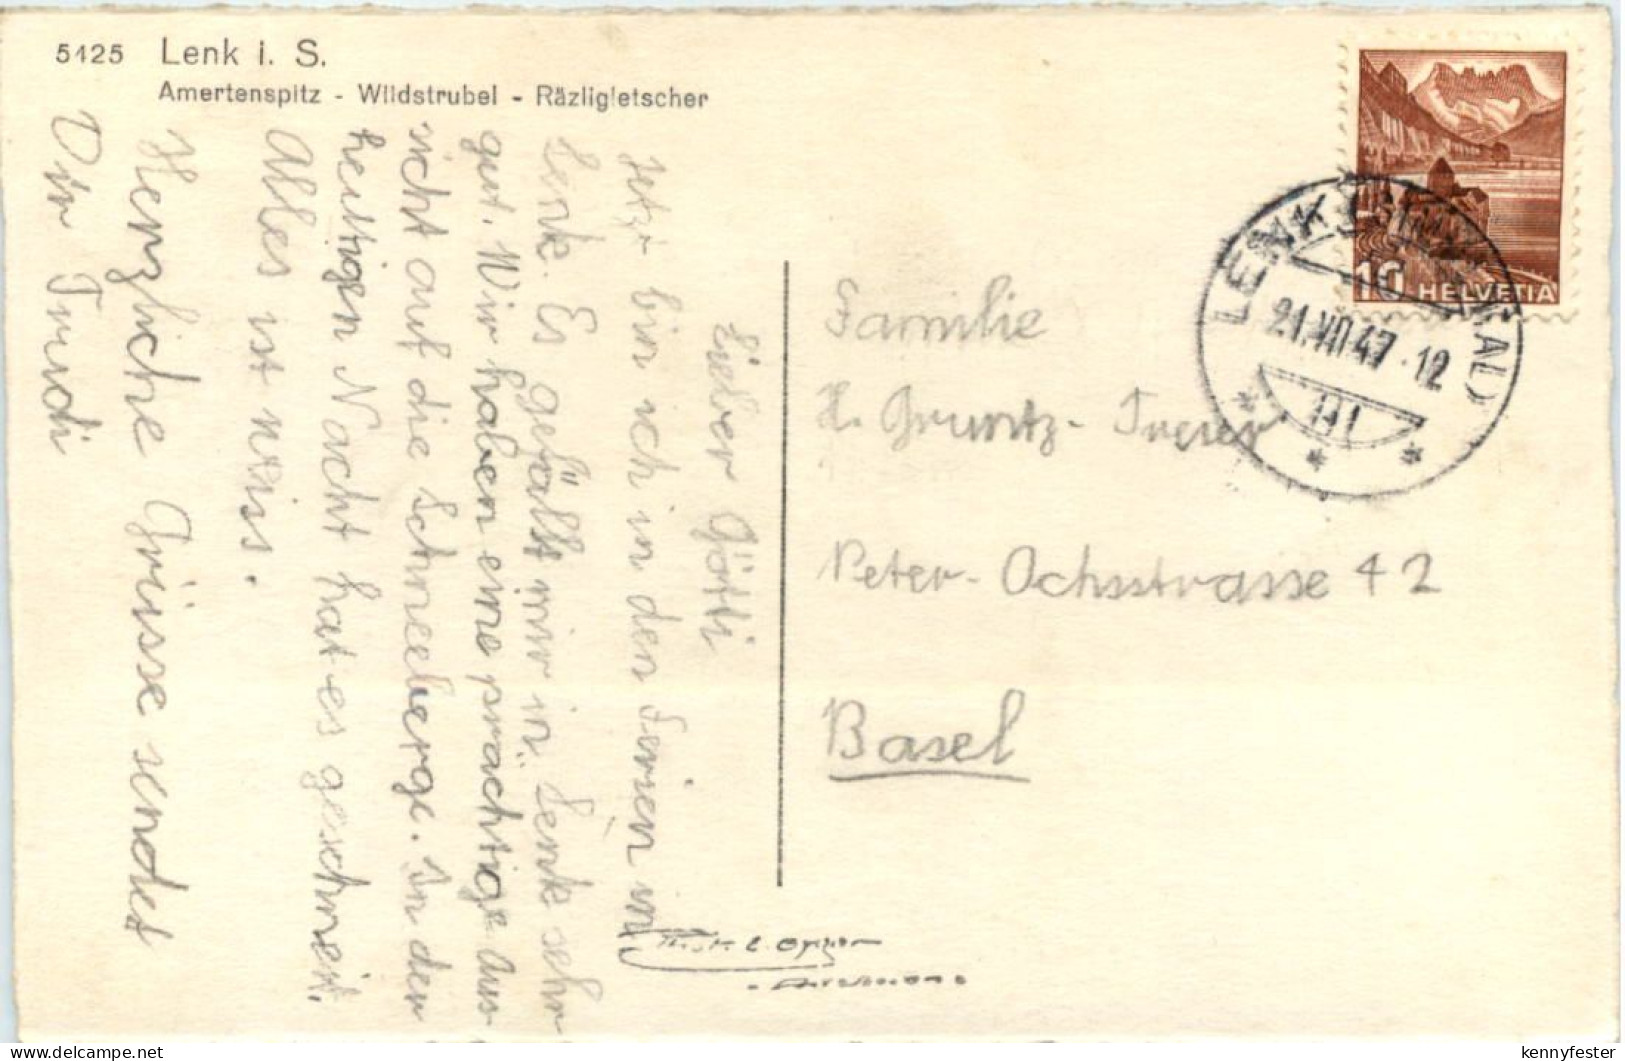 5425 Lenk i. S.
Amertenspitz - Wildstrubel - Räzligletscher
Lieber Götti
Jetzt bin ich in den Ferien in
Lenk. Es gefällt mir in Lenk sehr
gut. Wir haben eine prächtige Aus-
sicht auf die Schneeberge. In der
heutigen Nacht hat es geschneit.
Alles ist weiss.
Herzliche Grüsse sendet
Dir Trudi
Familie
H.
Peter-Ochsstrasse 42
Basel
10 HELVETIA
LENK (SIMMENTAL)
21.VII.47-12
delcampe.net
kennyfester